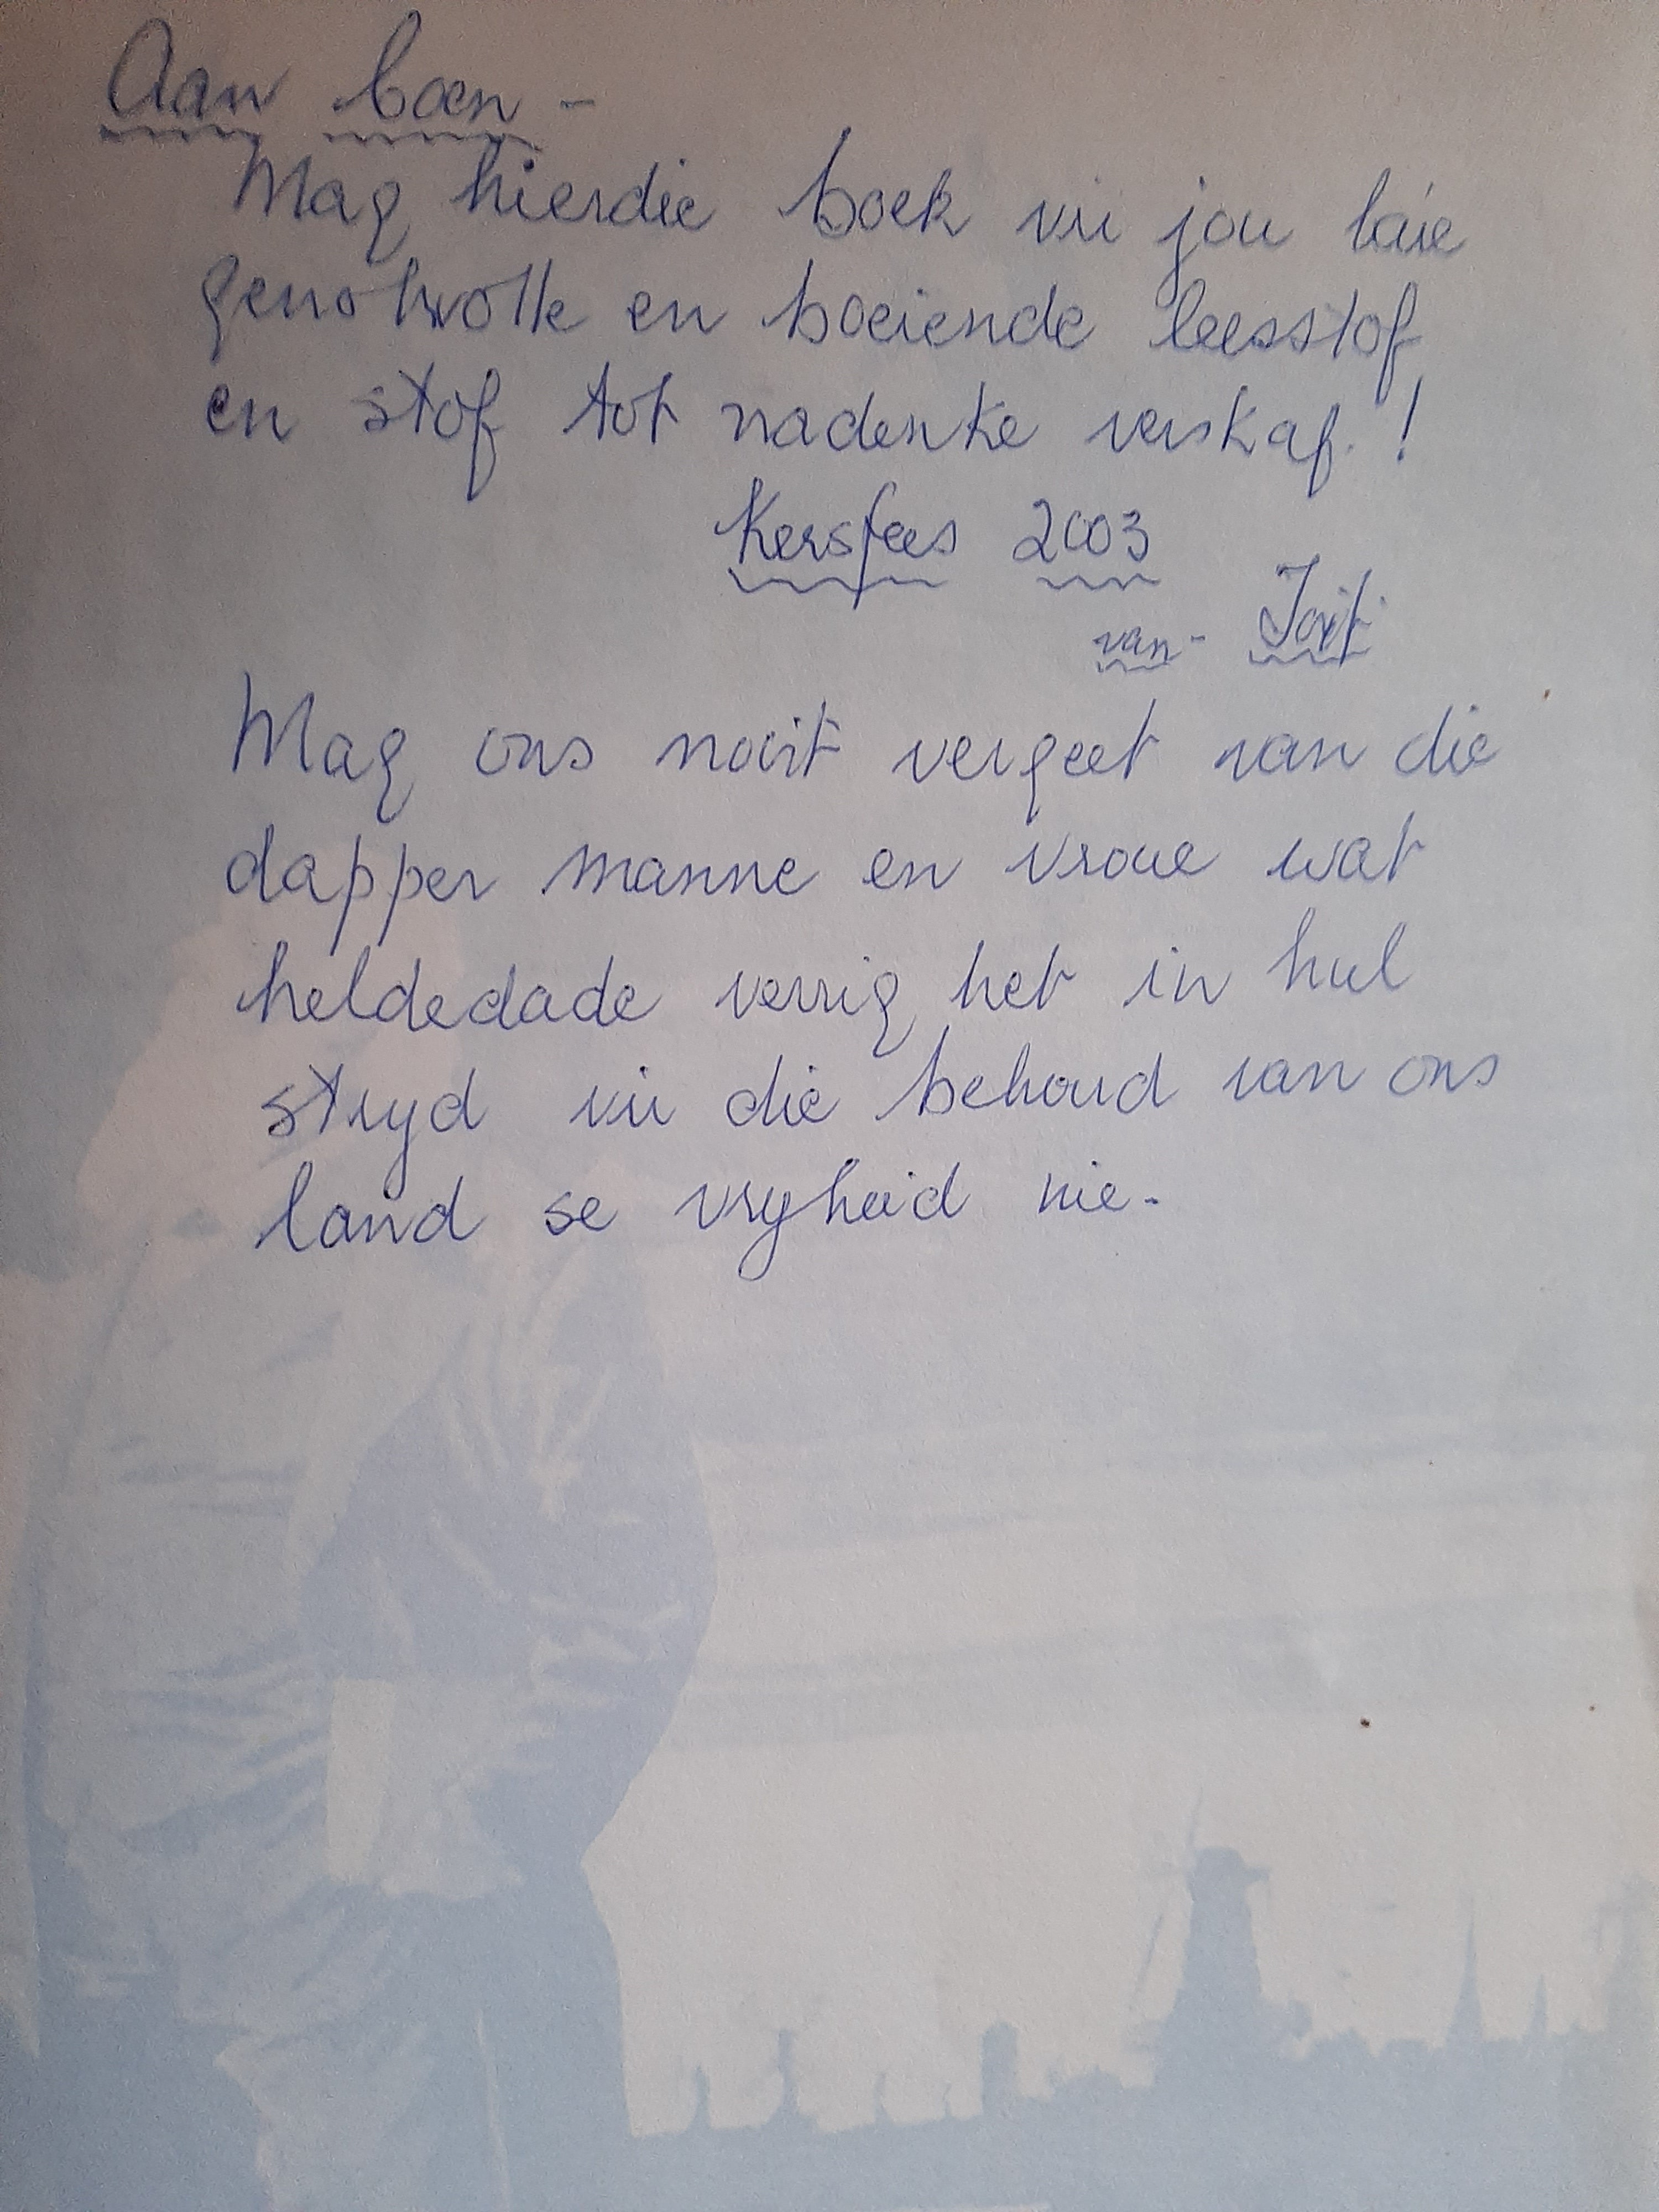 Aan Coen -
Mag hierdie boek vir jou baie
genotvolle en boeiende leesstof
en stof tot nadenke verskaf.!
Kersfees 2003
van -
Mag ons nooit vergeet van die
dapper manne en vroue wat
heldedade verrig het in hul
stryd vir die behoud van ons
land se vryheid nie.